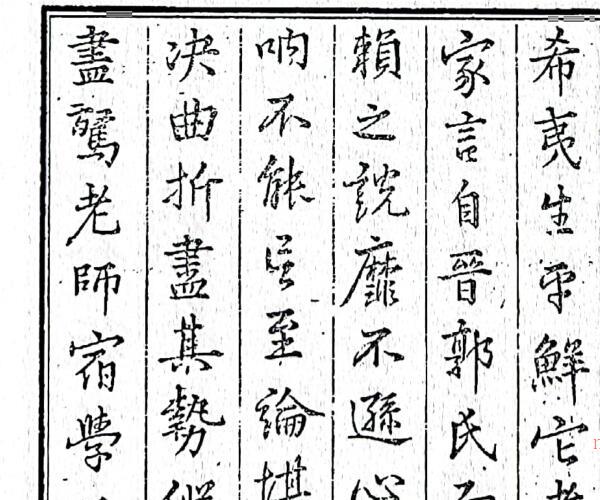 希夷生平鮮它
家言自晉郭氏
賴之說靡不遜心
吶不能言至論堪
決曲折盡其勢縱
盡驚老師宿學